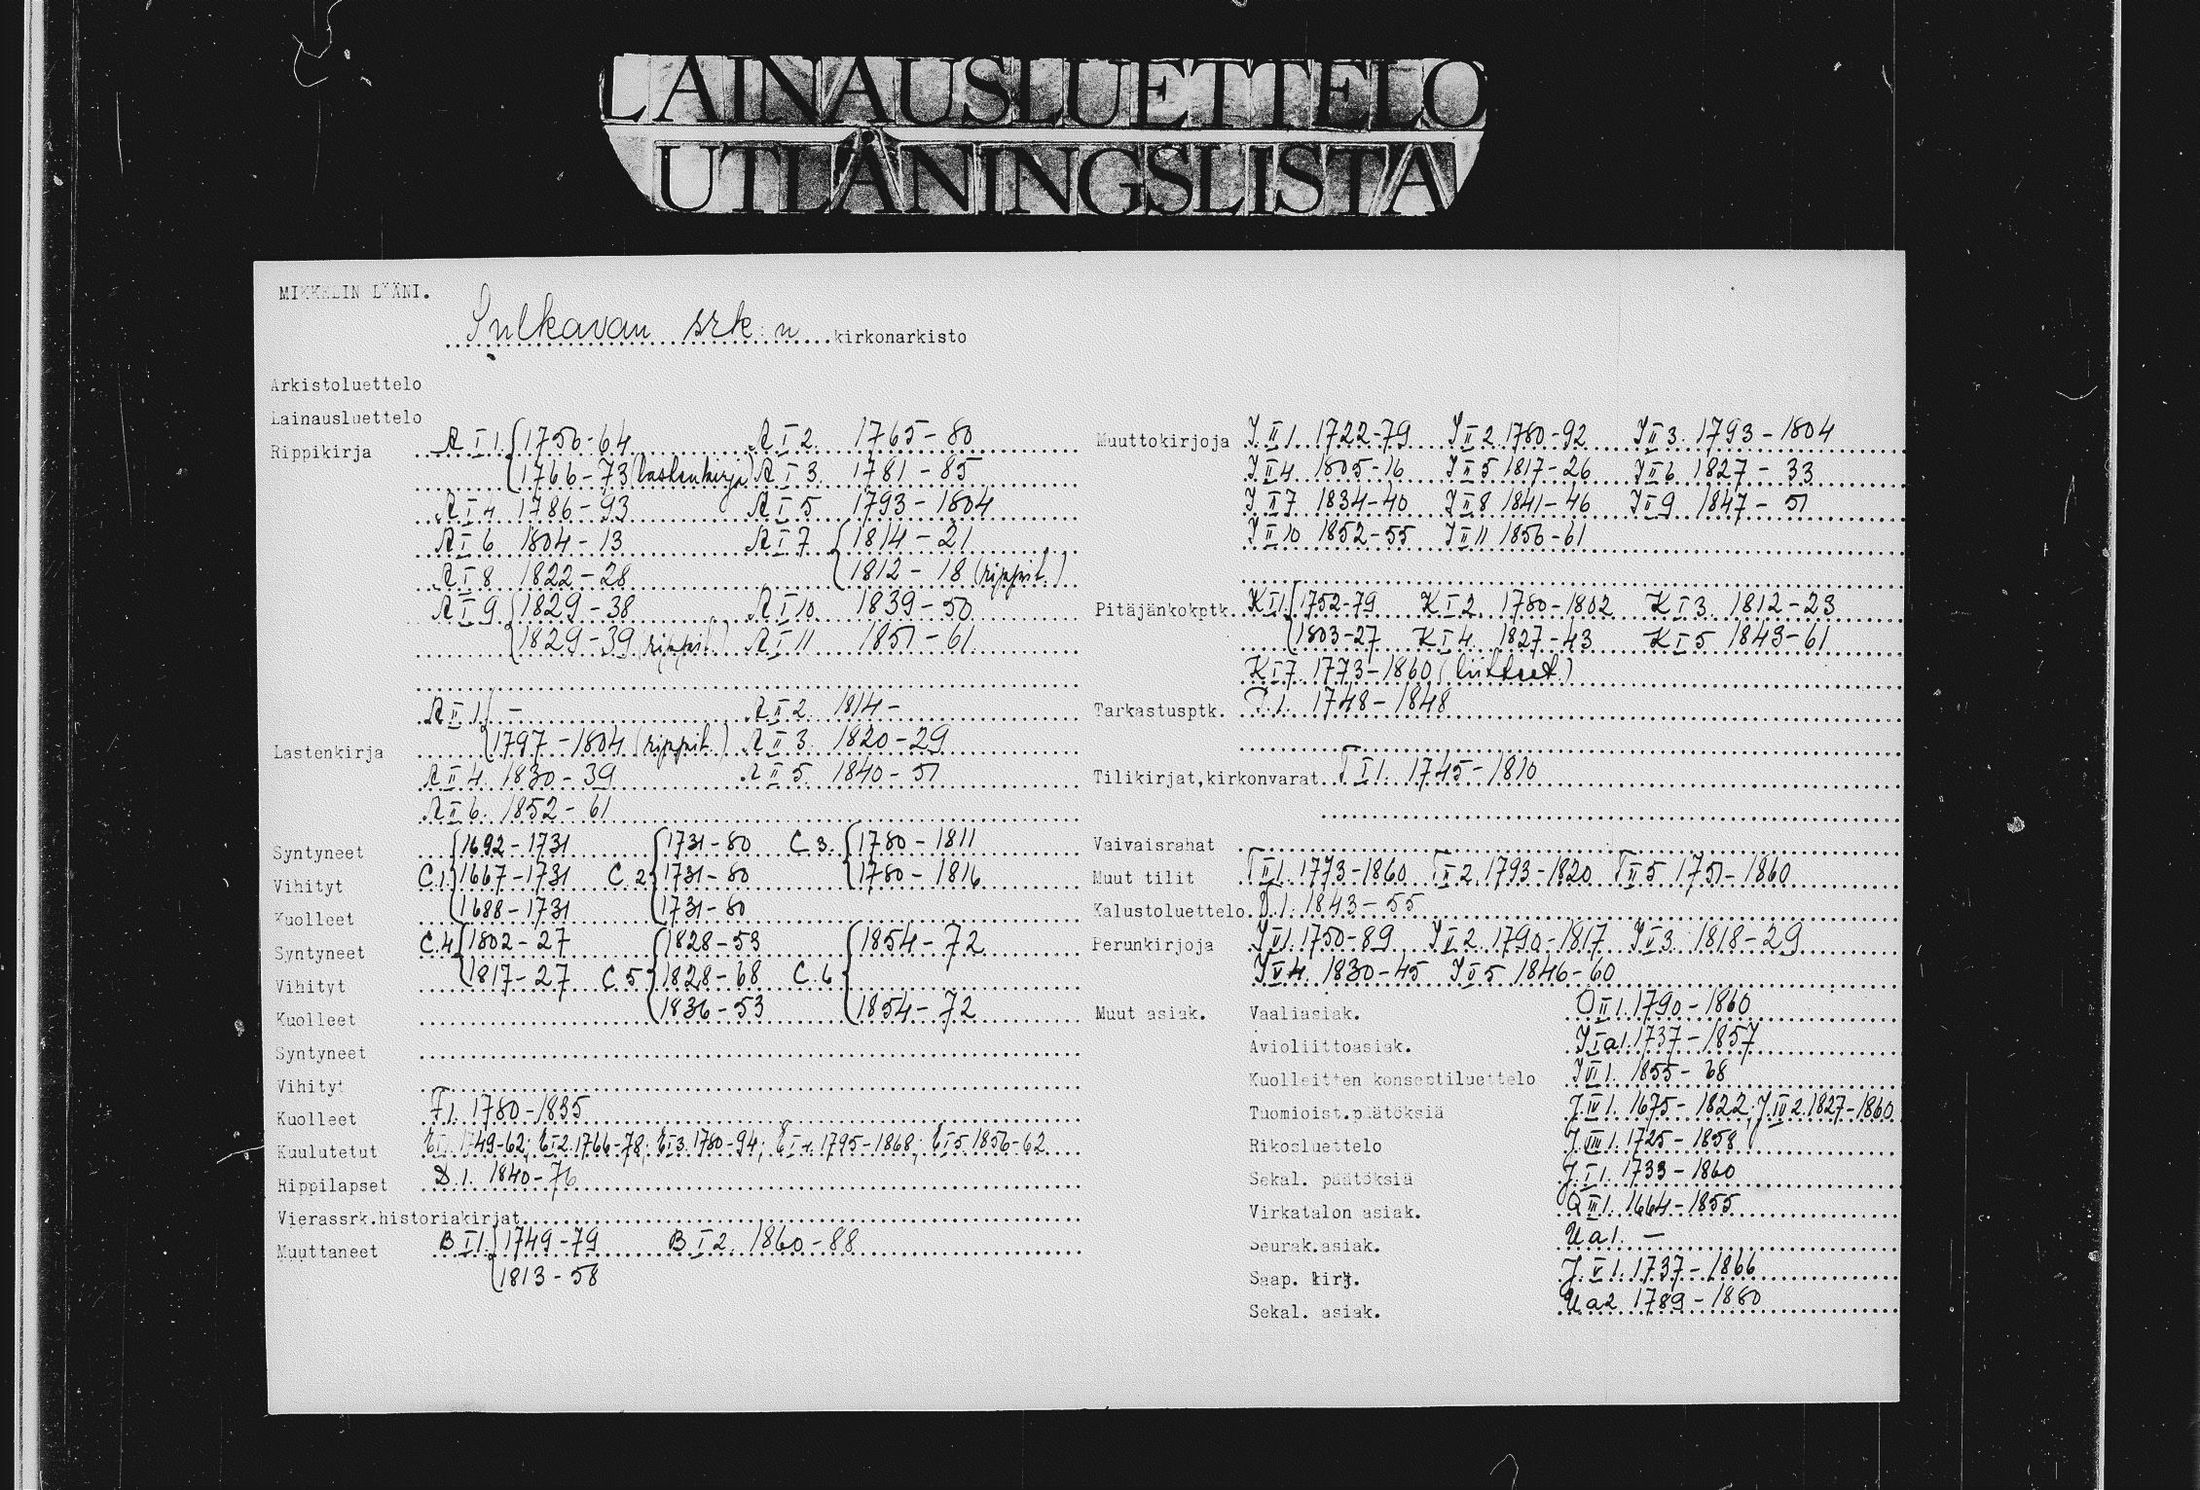 LAINAUSLUETTELO
UTLÅNINGSLISTA
MIKKELIN LÄÄNI.
Sulkavan srk:n kirkonarkisto
Arkistoluettelo
Lainausluettelo
Rippikirja A I 1. 1750-64 A I 2. 1765-80
1766-73 (lastenkirja) A I 3. 1781-85
A I 4 1786-93 A I 5 1793-1804
A I 6 1804-13 A I 7 1814-21
A I 8 1822-28 1812-18 (rippil.)
A I 9 1829-38 A I 10. 1839-50
1829-39 (rippil.) A I 11 1851-61
A II 1. - A II 2. 1814-
Lastenkirja 1797-1804 (rippil.) A II 3. 1820-29
A II 4. 1830-39 A II 5. 1840-51
A II 6. 1852-61
Syntyneet 1692-1731 1731-80 C.3. 1780-1811
Vihityt C.1. 1667-1731 C.2 1731-80 1780-1816
Kuolleet 1688-1731 1731-80
Syntyneet C.4 1802-27 1828-53 1854-72
Vihityt 1817-27 C.5 1828-68 C.6
Kuolleet 1836-53 1854-72
Syntyneet
Vihityt
Kuolleet F1. 1780-1835
Kuulutetut E I 1. 1749-62; E I 2. 1766-78; E I 3. 1780-94; E I 4. 1795-1868; E I 5. 1856-62
Rippilapset D.1. 1840-76
Vierassrk.historiakirjat
Muuttaneet B I 1. 1749-79 B I 2. 1860-88
1813-58
Muuttokirjoja J II 1. 1722-79 J II 2. 1780-92 J II 3. 1793-1804
J II 4 1805-16 J II 5 1817-26 J II 6 1827-33
J II 7 1834-40 J II 8 1841-46 J II 9 1847-51
J II 10 1852-55 J II 11 1856-61
Pitäjänkokptk. K I 1. 1752-79 K I 2. 1780-1802 K I 3. 1812-23
1803-27 K I 4. 1827-43 K I 5 1843-61
K I 7 1773-1860 (liitteet)
Tarkastusptk. 1. 1748-1848
Tilikirjat,kirkonvarat T I 1. 1745-1810
Vaivaisrahat
Muut tilit T II 1. 1773-1860 T II 2. 1793-1820 T II 5 1751-1860
Kalustoluettelo 1. 1843-55
Perunkirjoja J V 1. 1750-89 J V 2. 1790-1817 J V 3. 1818-29
J V 4. 1830-45 J V 5 1846-60
Muut asiak. Vaaliasiak. O II 1. 1790-1860
Avioliittoasiak. J I a 1. 1737-1857
Kuolleitten konseptiluettelo 1. 1855-68
Tuomioist.päätöksiä J IV 1. 1675-1822, J IV 2. 1827-1860
Rikosluettelo J VIII 1. 1725-1858
Sekal. päätöksiä J I 1. 1733-1860
Virkatalon asiak. O III 1. 1664-1855
Seurak.asiak. U a 1. -
Saap. kirj. J V 1. 1737-1866
Sekal. asiak. U a 2 1789-1880